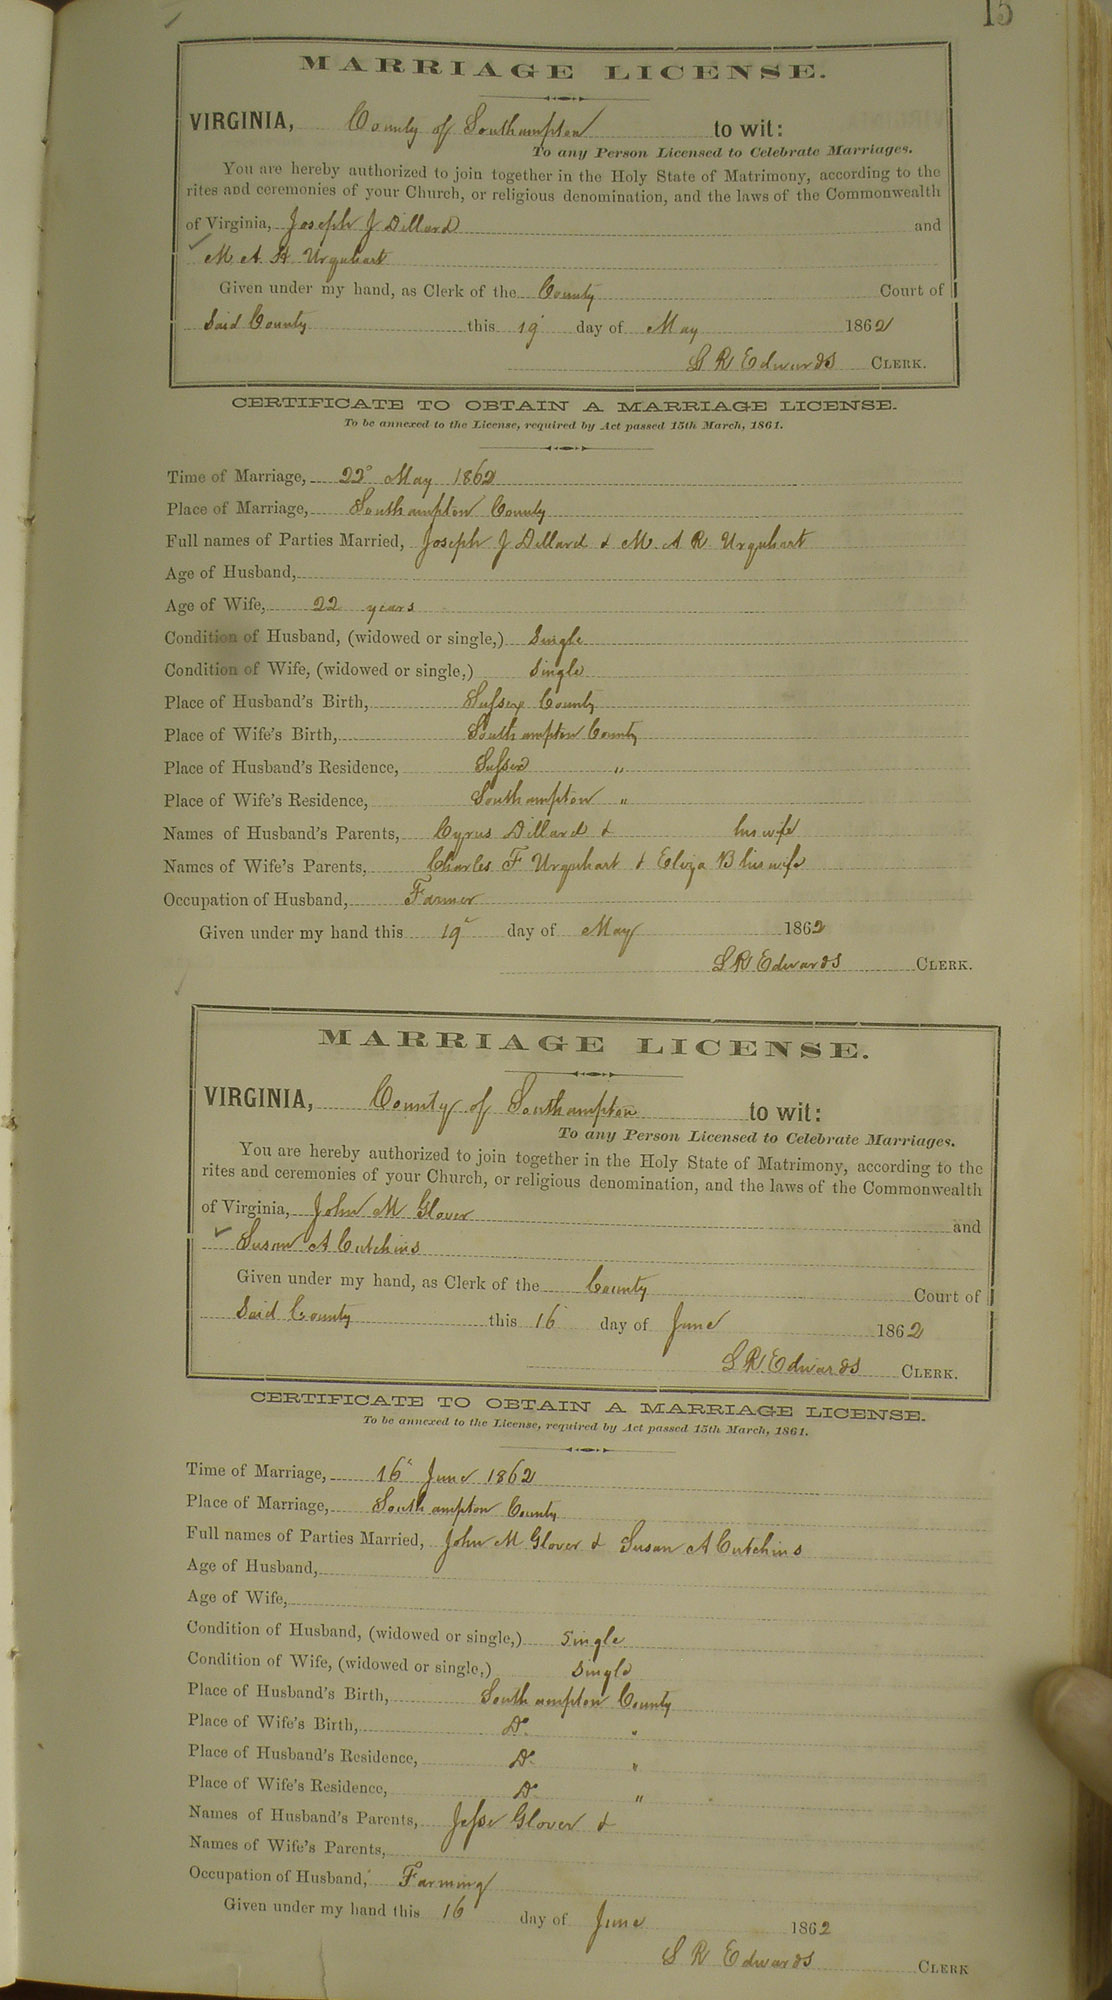 15
MARRIAGE LICENSE.
VIRGINIA, County of Southampton to wit:
To any Person Licensed to Celebrate Marriages.
You are hereby authorized to join together in the Holy State of Matrimony, according to the
rites and ceremonies of your Church, or religious denomination, and the laws of the Commonwealth
of Virginia, Joseph J Dillard and
M A R Urquhart
Given under my hand, as Clerk of the County Court of
Said County this 19 day of May 1862
L R Edwards CLERK.
CERTIFICATE TO OBTAIN A MARRIAGE LICENSE.
To be annexed to the License, required by Act passed 15th March, 1861.
Time of Marriage, 22d May 1862
Place of Marriage, Southampton County
Full names of Parties Married, Joseph J Dillard & M. A R. Urquhart
Age of Husband,
Age of Wife, 22 years
Condition of Husband, (widowed or single,) Single
Condition of Wife, (widowed or single,) Single
Place of Husband's Birth, Sussex County
Place of Wife's Birth, Southampton County
Place of Husband's Residence, Sussex "
Place of Wife's Residence, Southampton "
Names of Husband's Parents, Cyrus Dillard & his wife
Names of Wife's Parents, Charles F Urquhart & Eliza B his wife
Occupation of Husband, Farmer
Given under my hand this 19 day of May 1862
L R Edwards CLERK.
MARRIAGE LICENSE.
VIRGINIA, County of Southampton to wit:
To any Person Licensed to Celebrate Marriages.
You are hereby authorized to join together in the Holy State of Matrimony, according to the
rites and ceremonies of your Church, or religious denomination, and the laws of the Commonwealth
of Virginia, John M Glover and
Susan A Cutchins
Given under my hand, as Clerk of the County Court of
Said County this 16 day of June 1862
L R Edwards CLERK.
CERTIFICATE TO OBTAIN A MARRIAGE LICENSE.
To be annexed to the License, required by Act passed 15th March, 1861.
Time of Marriage, 16 June 1862
Place of Marriage, Southampton County
Full names of Parties Married, John M Glover & Susan A Cutchins
Age of Husband,
Age of Wife,
Condition of Husband, (widowed or single,) Single
Condition of Wife, (widowed or single,) Single
Place of Husband's Birth, Southampton County
Place of Wife's Birth, Do "
Place of Husband's Residence, Do "
Place of Wife's Residence, Do "
Names of Husband's Parents, Jesse Glover &
Names of Wife's Parents,
Occupation of Husband, Farming
Given under my hand this 16 day of June 1862
L R Edwards CLERK